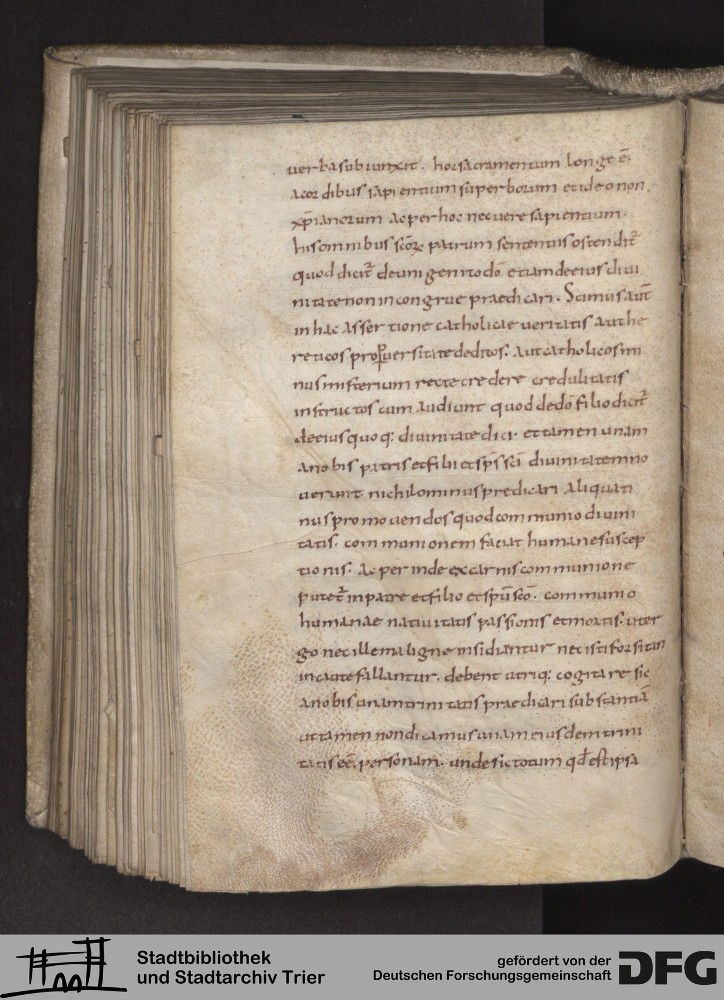 uerba subiunxit. hoc sacramentum longe ē.
a cordibus sapientium superborum et ideo non
xp̄ianorum ac per hoc nec uere sapientium.
his omnibus scōrū patrum sententiis ostendit̄
quod dicit̄ de unigenito dō etiam de eius diui
nitate non incongrue praedicari. Scimus aut̄
in hac assertione catholicae ueritatis aut he
reticos pro ꝑuersitate deditos. aut catholicos mi
nus misterium recte credere credulitatis
instructos cum audiunt quod de dō filio dicit̄
de eius quoq: diuinitate dici. et tamen unam
a nobis patris et filii et sp̄s sc̄i diuinitatem no
uerunt nichilominus predicari aliquati
nus promouendos quod communio diuini
tatis. communionem faciat humane suscep
tionis. ac perinde ex carnis communione
putet̄ in patre et filio et sp̄u scō. communio
humanae natiuitatis passionis et mortis. ut er
go nec ille maligne insidiantur nec isti forsitan
incaute fallantur. debent utriq: cogitare sic
a nobis unam trinitatis praedicari substantiā
ut tamen non dicamus unam eiusdem trini
tatis eē personam. unde sic totum qđ est ipsa
Stadtbibliothek
und Stadtarchiv Trier
gefördert von der
Deutschen Forschungsgemeinschaft
DFG